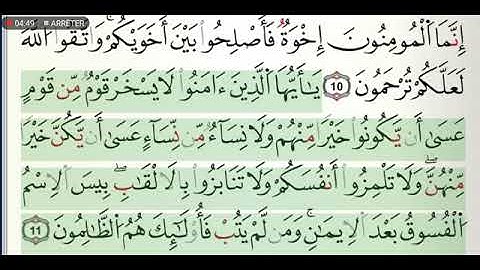 04:49 ■ ARRÊTER
إِنَّمَا اَ۬لْمُومِنُونَ إِخْوَةٞ فَأَصْلِحُواْ بَيْنَ أَخَوَيْكُمْۖ وَاتَّقُواْ اُ۬للَّهَ
لَعَلَّكُمْ تُرْحَمُونَۖ 10 يَٰأَيُّهَا اَ۬لذِينَ ءَامَنُواْ لَا يَسْخَرْ قَوْمٞ مِّن قَوْمٍ
عَسَىٰ أَنْ يَّكُونُواْ خَيْراٗ مِّنْهُمْ وَلَا نِسَآءٞ مِّن نِّسَآءٍ عَسَىٰ أَنْ يَّكُنَّ خَيْراٗ
مِّنْهُنَّۖ وَلَا تَلْمِزُواْ أَنفُسَكُمْ وَلَا تَنَابَزُواْ بِالَالْقَٰبِۖ بِيسَ اَ۬لِاسْمُ
اُ۬لْفُسُوقُ بَعْدَ اَ۬لِايمَٰنِۖ وَمَن لَّمْ يَتُبْ فَأُوْلَٰٓئِكَ هُمُ اُ۬لظَّٰلِمُونَۖ 11